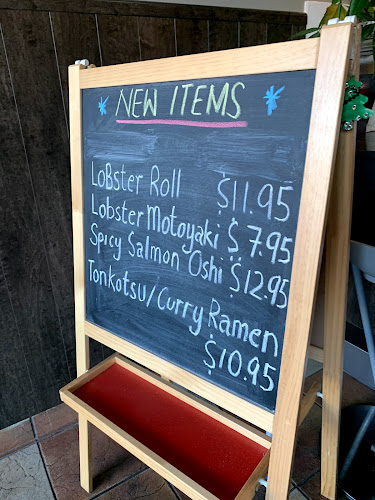 NEW ITEMS
LoBster Roll $11.95
Lobster Motoyaki $7.95
Spicy Salmon Oshi $12.95
Tonkotsu/Curry Ramen
$10.95